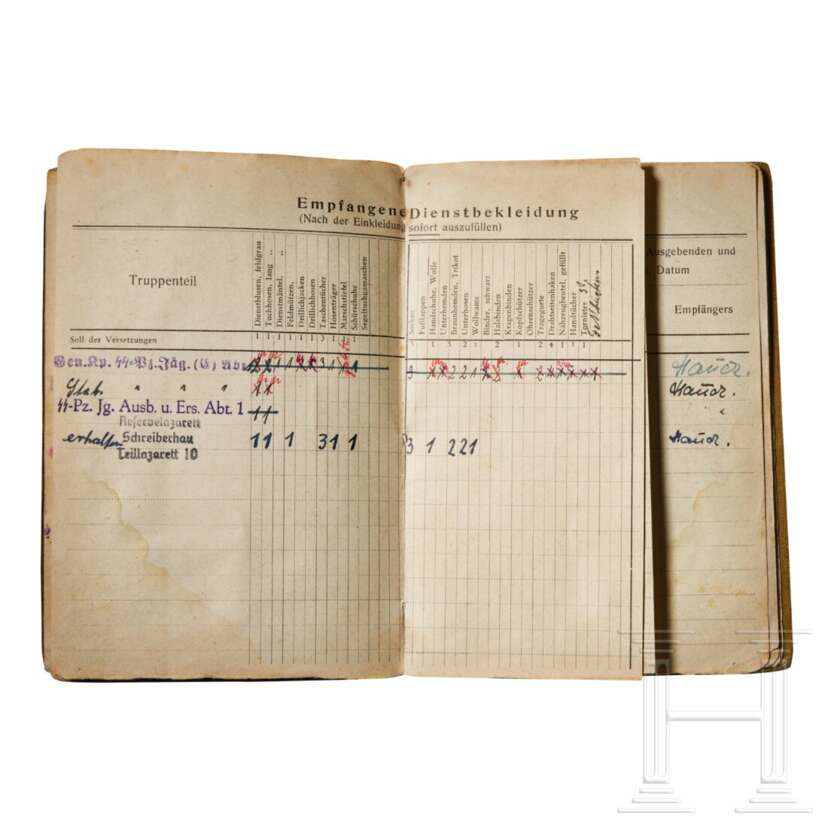 Empfangene Dienstbekleidung
(Nach der Einkleidung sofort auszufüllen)
Ausgebenden und
Datum
Truppenteil
Empfängers
Dienstblusen, feldgrau
Tuchhosen, lang „
Dienstmäntel, „
Feldmützen, „
Drillichjacken
Drillichhosen
Taschentücher
Hosenträger
Marschstiefel
Schnürschuhe
Segeltuchgamaschen
Socken
Fußlappen
Handschuhe, Wolle
Unterhemden
Braunhemden, Trikot
Unterhosen
Wollwams
Binder, schwarz
Halsbinden
Kragenbinden
Kopfschützer
Ohrenschützer
Tragegurte
Drahtseitenhaken
Nähzeugbeutel, gefüllt
Handtücher
Tornister 34
Soll der Versetzungen
Gen.Kp. ᛋᛋ-Pz.Jäg.(G) Abt.
Hauck.
Stab. " " " 11
Hauck.
ᛋᛋ-Pz. Jg. Ausb. u. Ers. Abt. 1 11
"
Reservelazarett
erhalten Schreiberhau 11 1 31 1 3 1 221 Hauck.
Teillazarett 10